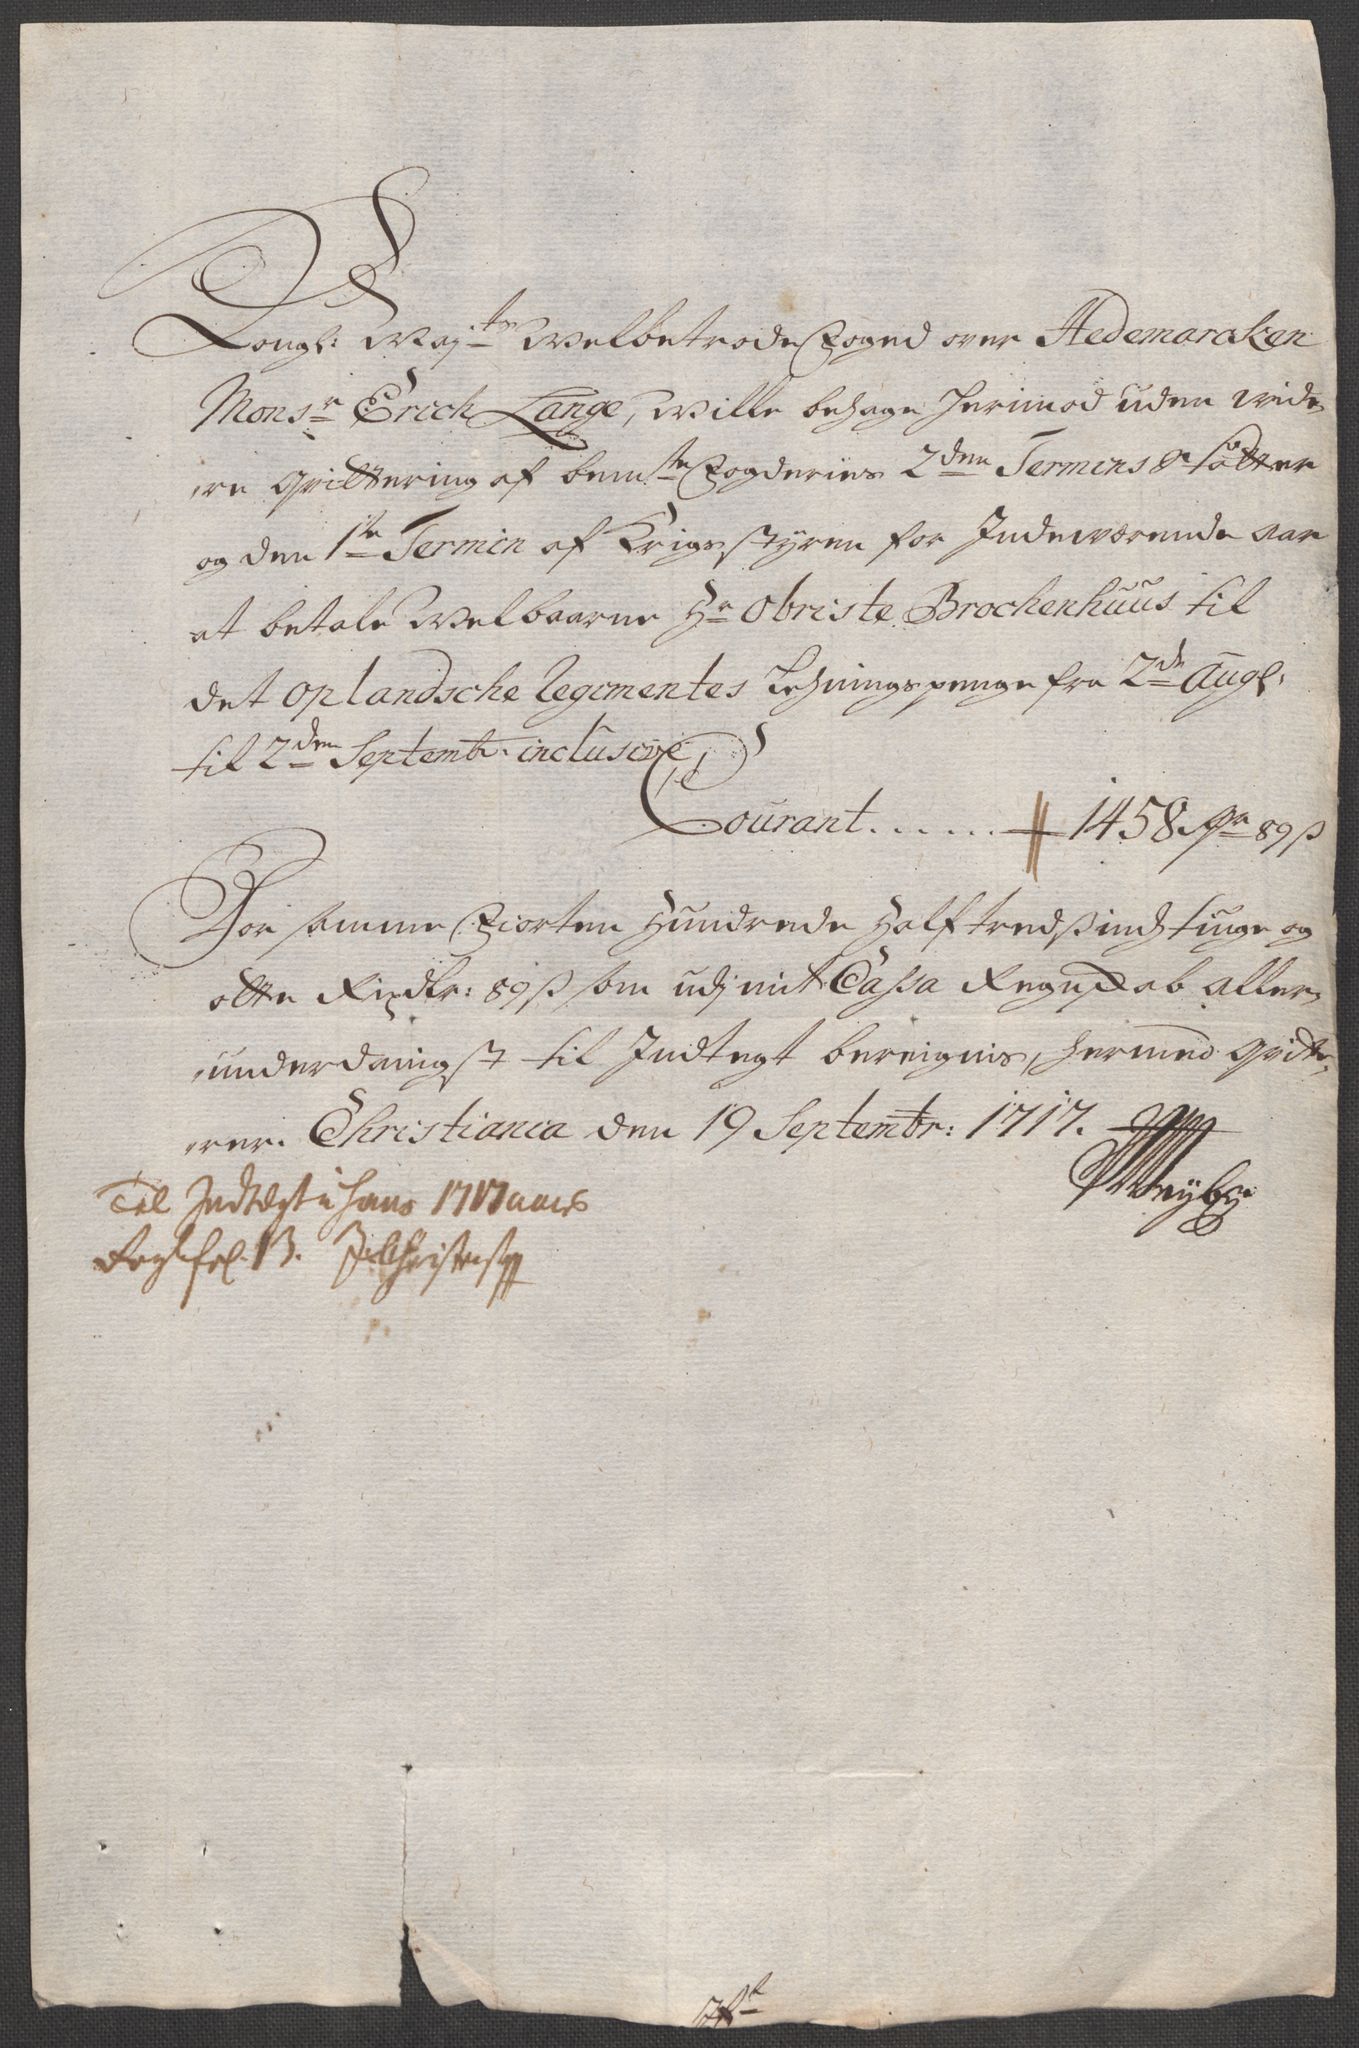 Kongl: May:ts Welbetrode Foged over Hedemarcken
Monsr Erich Lange, Wille behage herimod uden wide,
,re qvittering af bemte Fogderies 2den Termins Skatter
og den 1te Termin af Krigsstyren for Indeværende aar
at betale Welbaarne Hr Obriste Brochenhuus til
det oplandsche Regimentes Lehningspenge fra 2de Augl:
til 2den Septembr: inclusive
Courant...... 1458 Rdr 89 ß
For samme Fiorten Hundrede Halftredßindstiuge og
otte Rixdlr: 89 ß som udj mit Cassa Regnskab aller,
,underdanigst til Indtegt bereignis, hermed qvitte,
,rer. Christiania den 19 Septembr: 1717.
Til Indtægt i hans 1717 aars
Regl fol. 13.